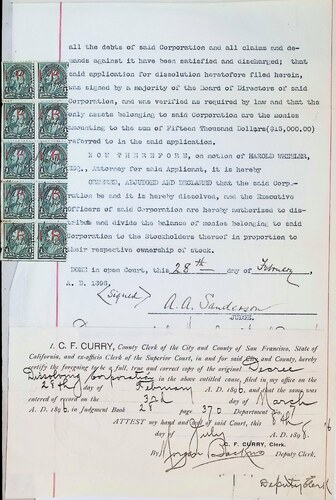 all the debts of said Corporation and all claims and de-
mands against it have been satisfied and discharged; that
said application for dissolution heretofore filed herein,
was signed by a majority of the Board of Directors of said
Corporation, and was verified as required by law and that the
only assets belonging to said Corporation are the monies
amounting to the sum of Fifteen Thousand Dollars($15,000.00)
referred to in the said application.
NOW THEREFORE, on motion of HAROLD WHEELER,
Esq., Attorney for said Applicant, it is hereby
ORDERED, ADJUDGED AND DECLARED that the said Corpo-
ration be and it is hereby dissolved, and the Executive
officers of said Corporation are hereby authorized to dis-
tribute and divide the balance of monies belonging to said
Corporation to the Stockholders thereof in proportion to
their respective ownership of stock.
DONE in open Court, this 28th day of February
A. D. 1896.
(Signed) A. A. Sanderson
JUDGE.
I, C. F. CURRY, County Clerk of the City and County of San Francisco, State of
California, and ex-officio Clerk of the Superior Court, in and for said City and County, hereby
certify the foregoing to be a full, true and correct copy of the original Decree
Dissolving Corporation in the above entitled cause, filed in my office on the
28th day of February A. D. 1896, and that the same was
entered of record on the day of March
A. D. 1896, in Judgment Book 28 page 370 Department No.
ATTEST my hand and seal of said Court, this 8th
day of July A. D. 1896.
C. F. CURRY, Clerk.
By Deputy Clerk.
Deputy Clerk